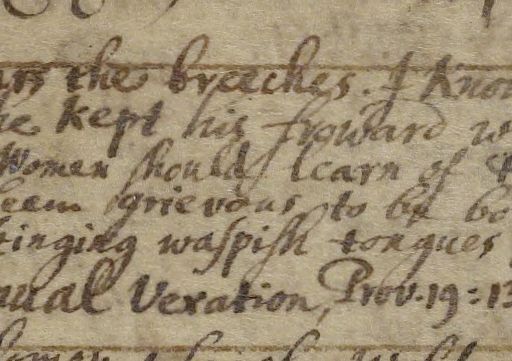 the breeches. I Know
he kept his froward
Women should learn of
seem grievous to be
stinging waspish tongues
nual Vexation, Prov. 19: 13